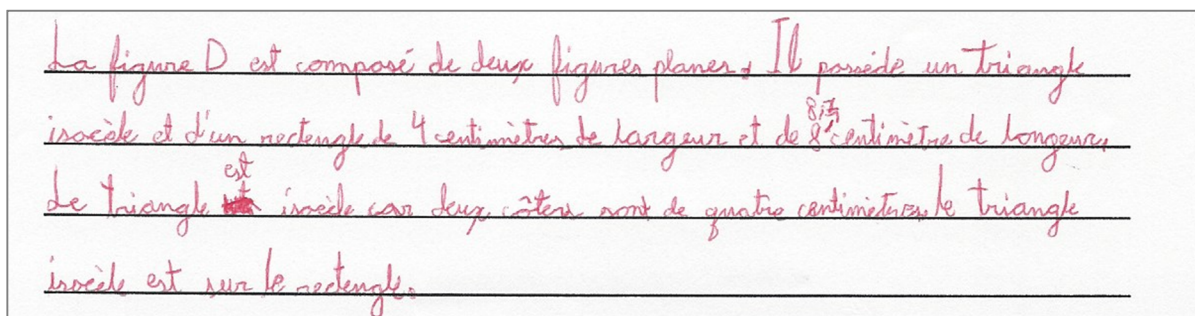 La figure D est composé de deux figures planes. Il possède un triangle
isocèle et d'un rectengle de 4 centimètres de largeur et de 8,7 centimètre de longeur.
Le triangle est isocèle car deux côters sont de quatre centimètres, le triangle
isocèle est sur le rectengle.